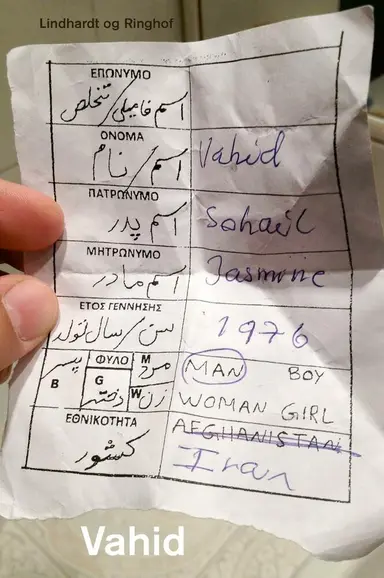 Lindhardt og Ringhof
ΕΠΩΝΥΜΟ
اسم فامیلی/تخلص
ΟΝΟΜΑ
اسم/نام
Vahid
ΠΑΤΡΩΝΥΜΟ
اسم پدر
Sohail
ΜΗΤΡΩΝΥΜΟ
اسم مادر
Jasmine
ΕΤΟΣ ΓΕΝΝΗΣΗΣ
سن/سال تولد
1976
پسر B
ΦΥΛΟ
G دختر
M مرد
W زن
MAN BOY
WOMAN GIRL
ΕΘΝΙΚΟΤΗΤΑ
کشور
AFGHANISTAN
Iran
Vahid